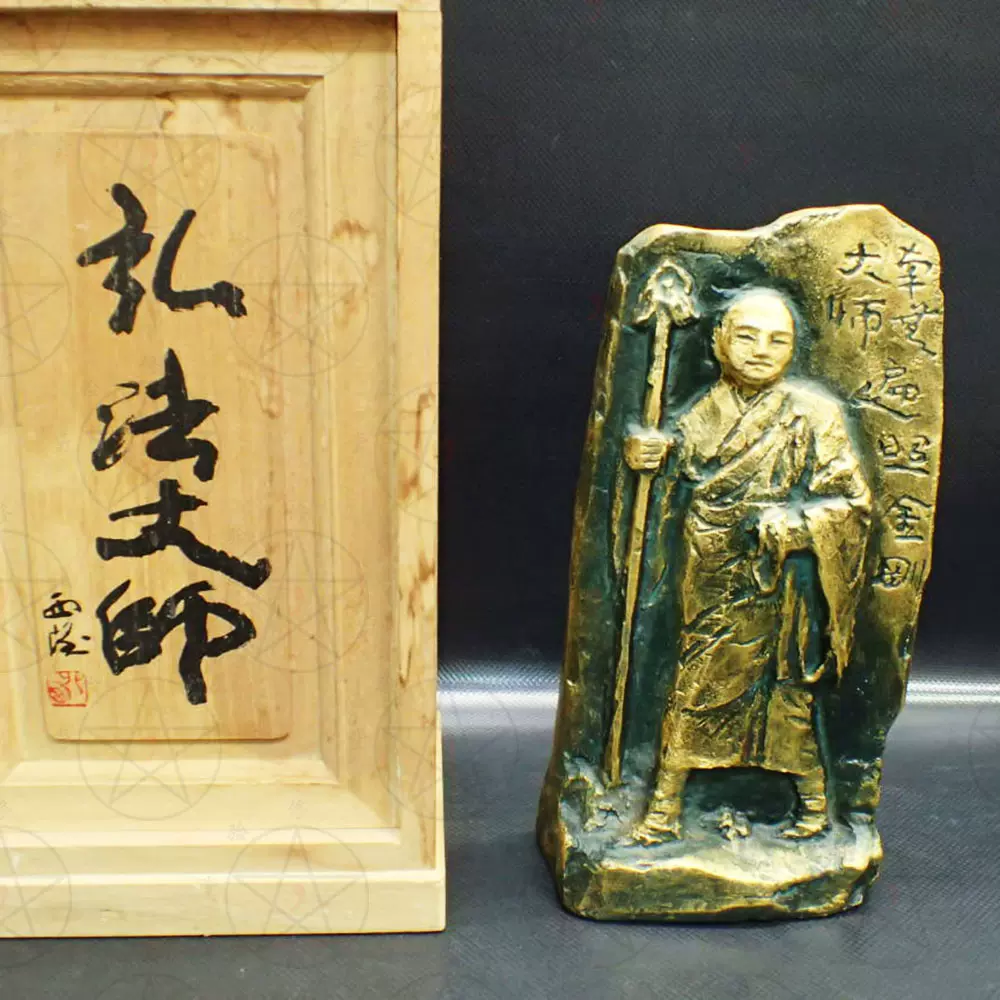 弘法大師
西望
南無
大師
遍照金剛